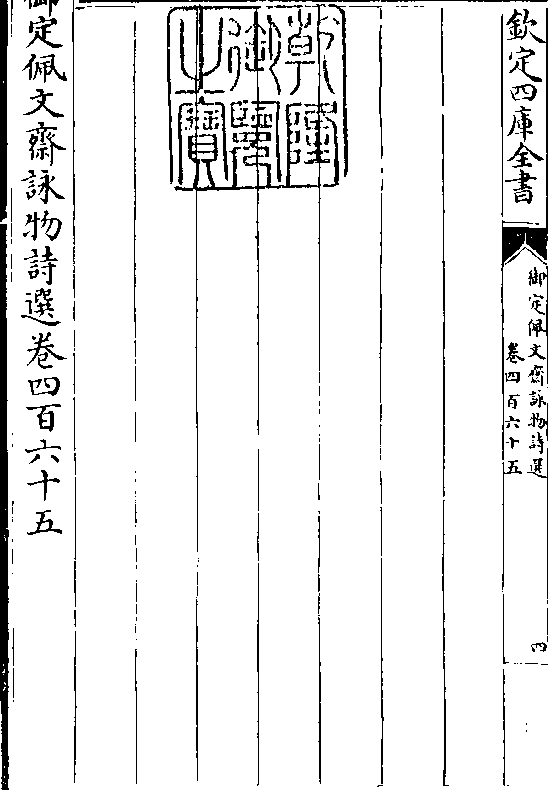 欽定四庫全書
御定佩文齋詠物詩選
卷四百六十五
四
乾隆御覽之寶
御定佩文齋詠物詩選卷四百六十五